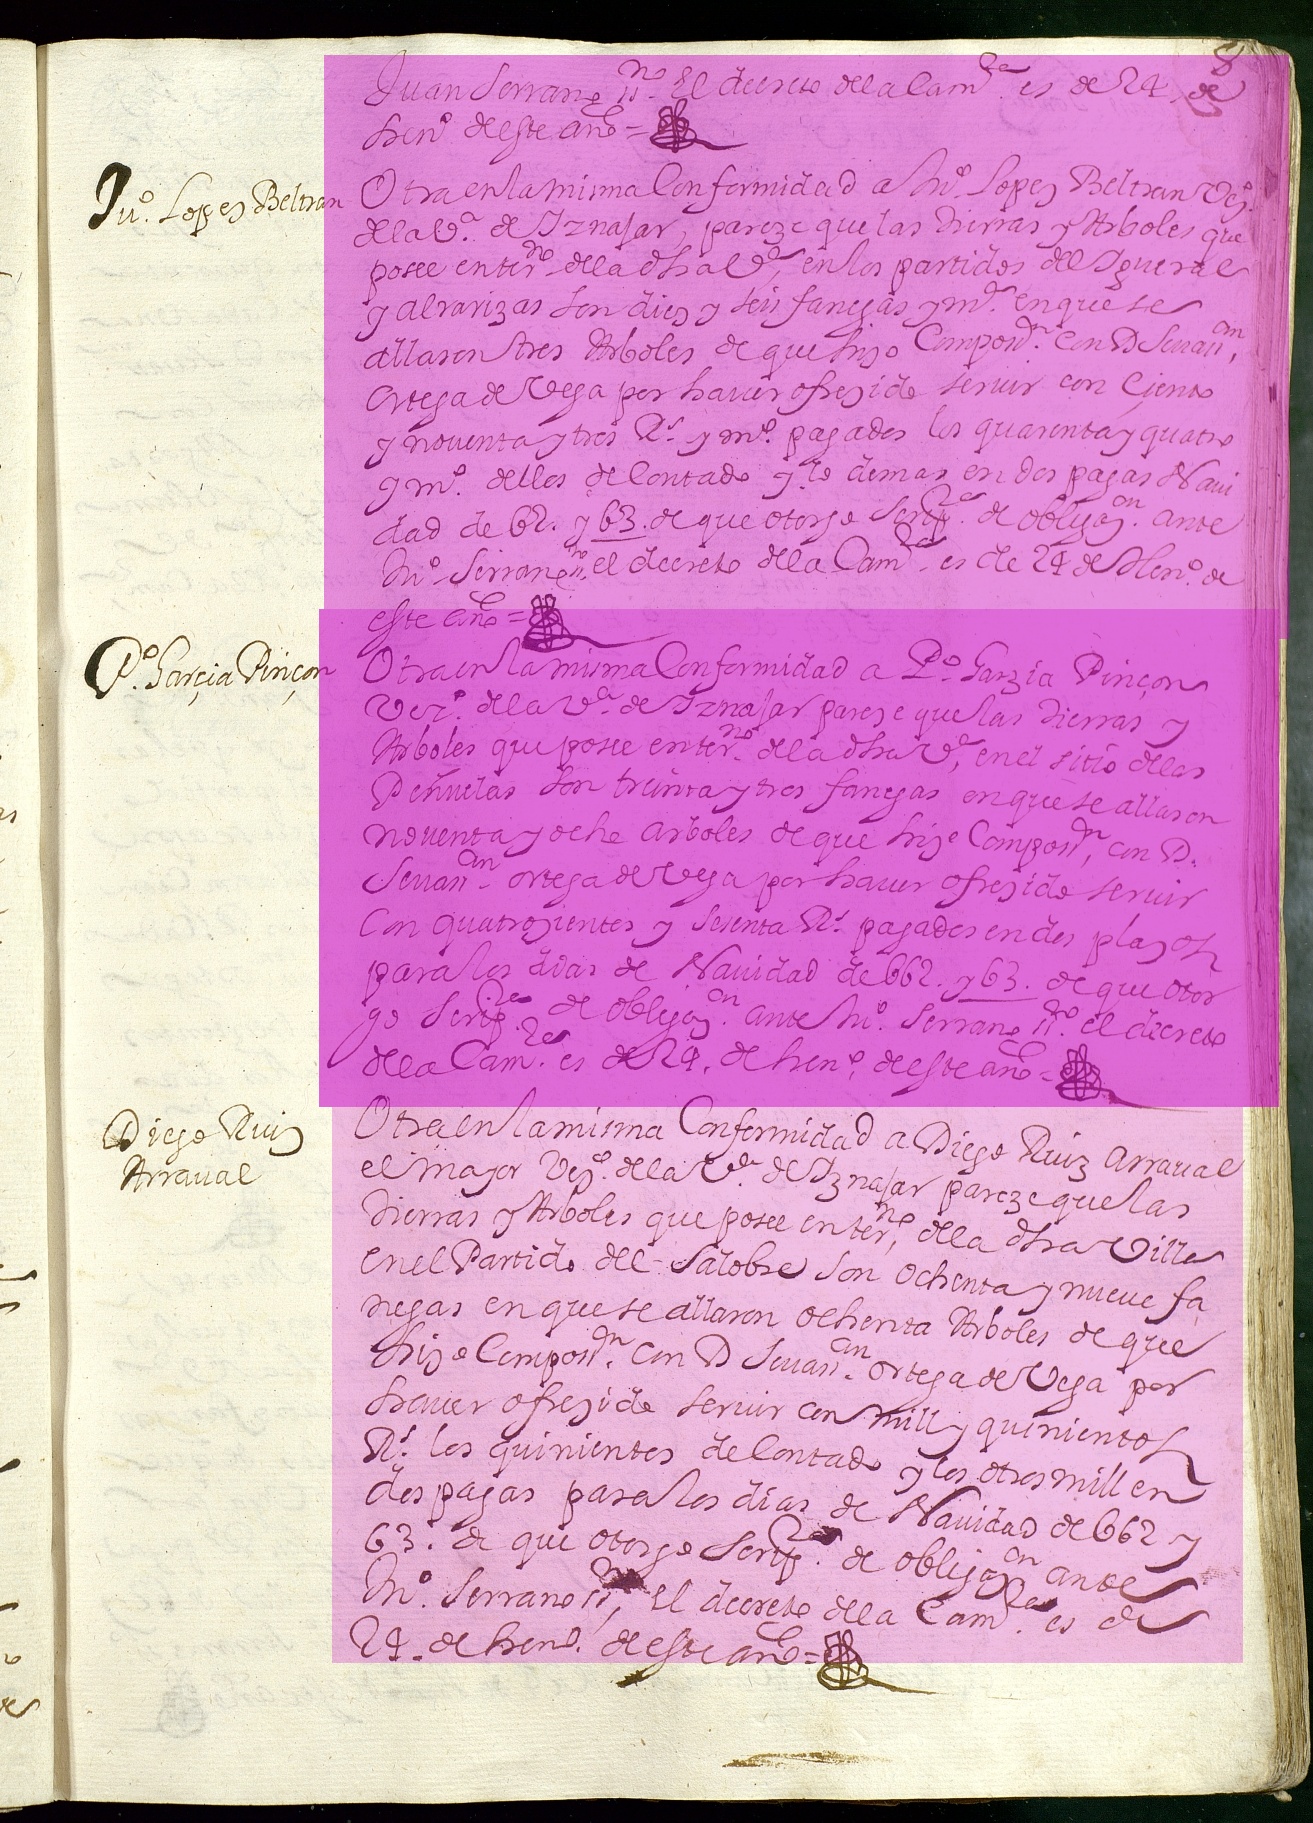 8
Juan Serrano ss.no El decreto de la Cam.ra es de 24 de
hen.o de este año =
Ju.o Lopez Beltran
Otra en la misma Conformidad a Ju.o Lopez Beltran Vez.o
de la V.a de Iznajar, pareze que las tierras y Arboles que
posee enter.no de la dha V.a, en los partidos del Igueral
y albarizas son diez y seis fanegas y m.a en que se
allaron tres Arboles de que hizo Composi.on con D Seuas.an
Ortega de Vega por hauer ofrezido seruir con Ciento
y nouenta y tres R.s y m.o pagados los quarenta y quatro
y m.o dellos de Contado y lo demas en dos pagas Naui
dad de 62. y 63. de que otorgo scrip.ra de obligaz.on ante
Ju.o Serrano ss.no el decreto de la Cam.ra es de 24 de Hen.o de
este año =
P.o Garçia Pinçon
Otra en la misma Conformidad a P.o Garzia Pinçon
Vez.o de la V.a de Iznajar pareze que las tierras y
Arboles que posee enter.no de la dha V.a, en el sitio dellas
Peñuelas son treinta y tres fanegas en que se allaron
nouenta y ocho arboles de que hizo Composi.on, con D.
Seuas.an ortega de Vega por hauer ofrezido seruir
Con quatrozientos y sesenta R.s pagados en dos plazos
para los dias de Nauidad de 662. y 63. de que otor
go scrip.ra de obligaz.on ante Ju.o Serrano ss.no el decreto
de la Cam.ra es de 24. de hen.o de este año =
Diego Ruiz
Arraual
Otra en la misma Conformidad a Diego Ruiz Arraual
el mayor Vez.o de la V.a de Iznajar pareze que las
tierras y Arboles que posee enter.no, de la dha Villa
en el Partido del Salobre son ochenta y nueue fa
negas en que se allaron ochenta Arboles de que
hizo Composi.on con D Seuas.an ortega de Vega por
hauer ofrezido seruir con mill y quinientos
R.s los quinientos de Contado y los otros mill en
dos pagas para los dias de Nauidad de 662 y
63. de que otorgo scrip.ra de obligaz.on ante
Ju.o Serrano ss.no, El decreto de la Cam.ra es de
24. de hen.o de este año =